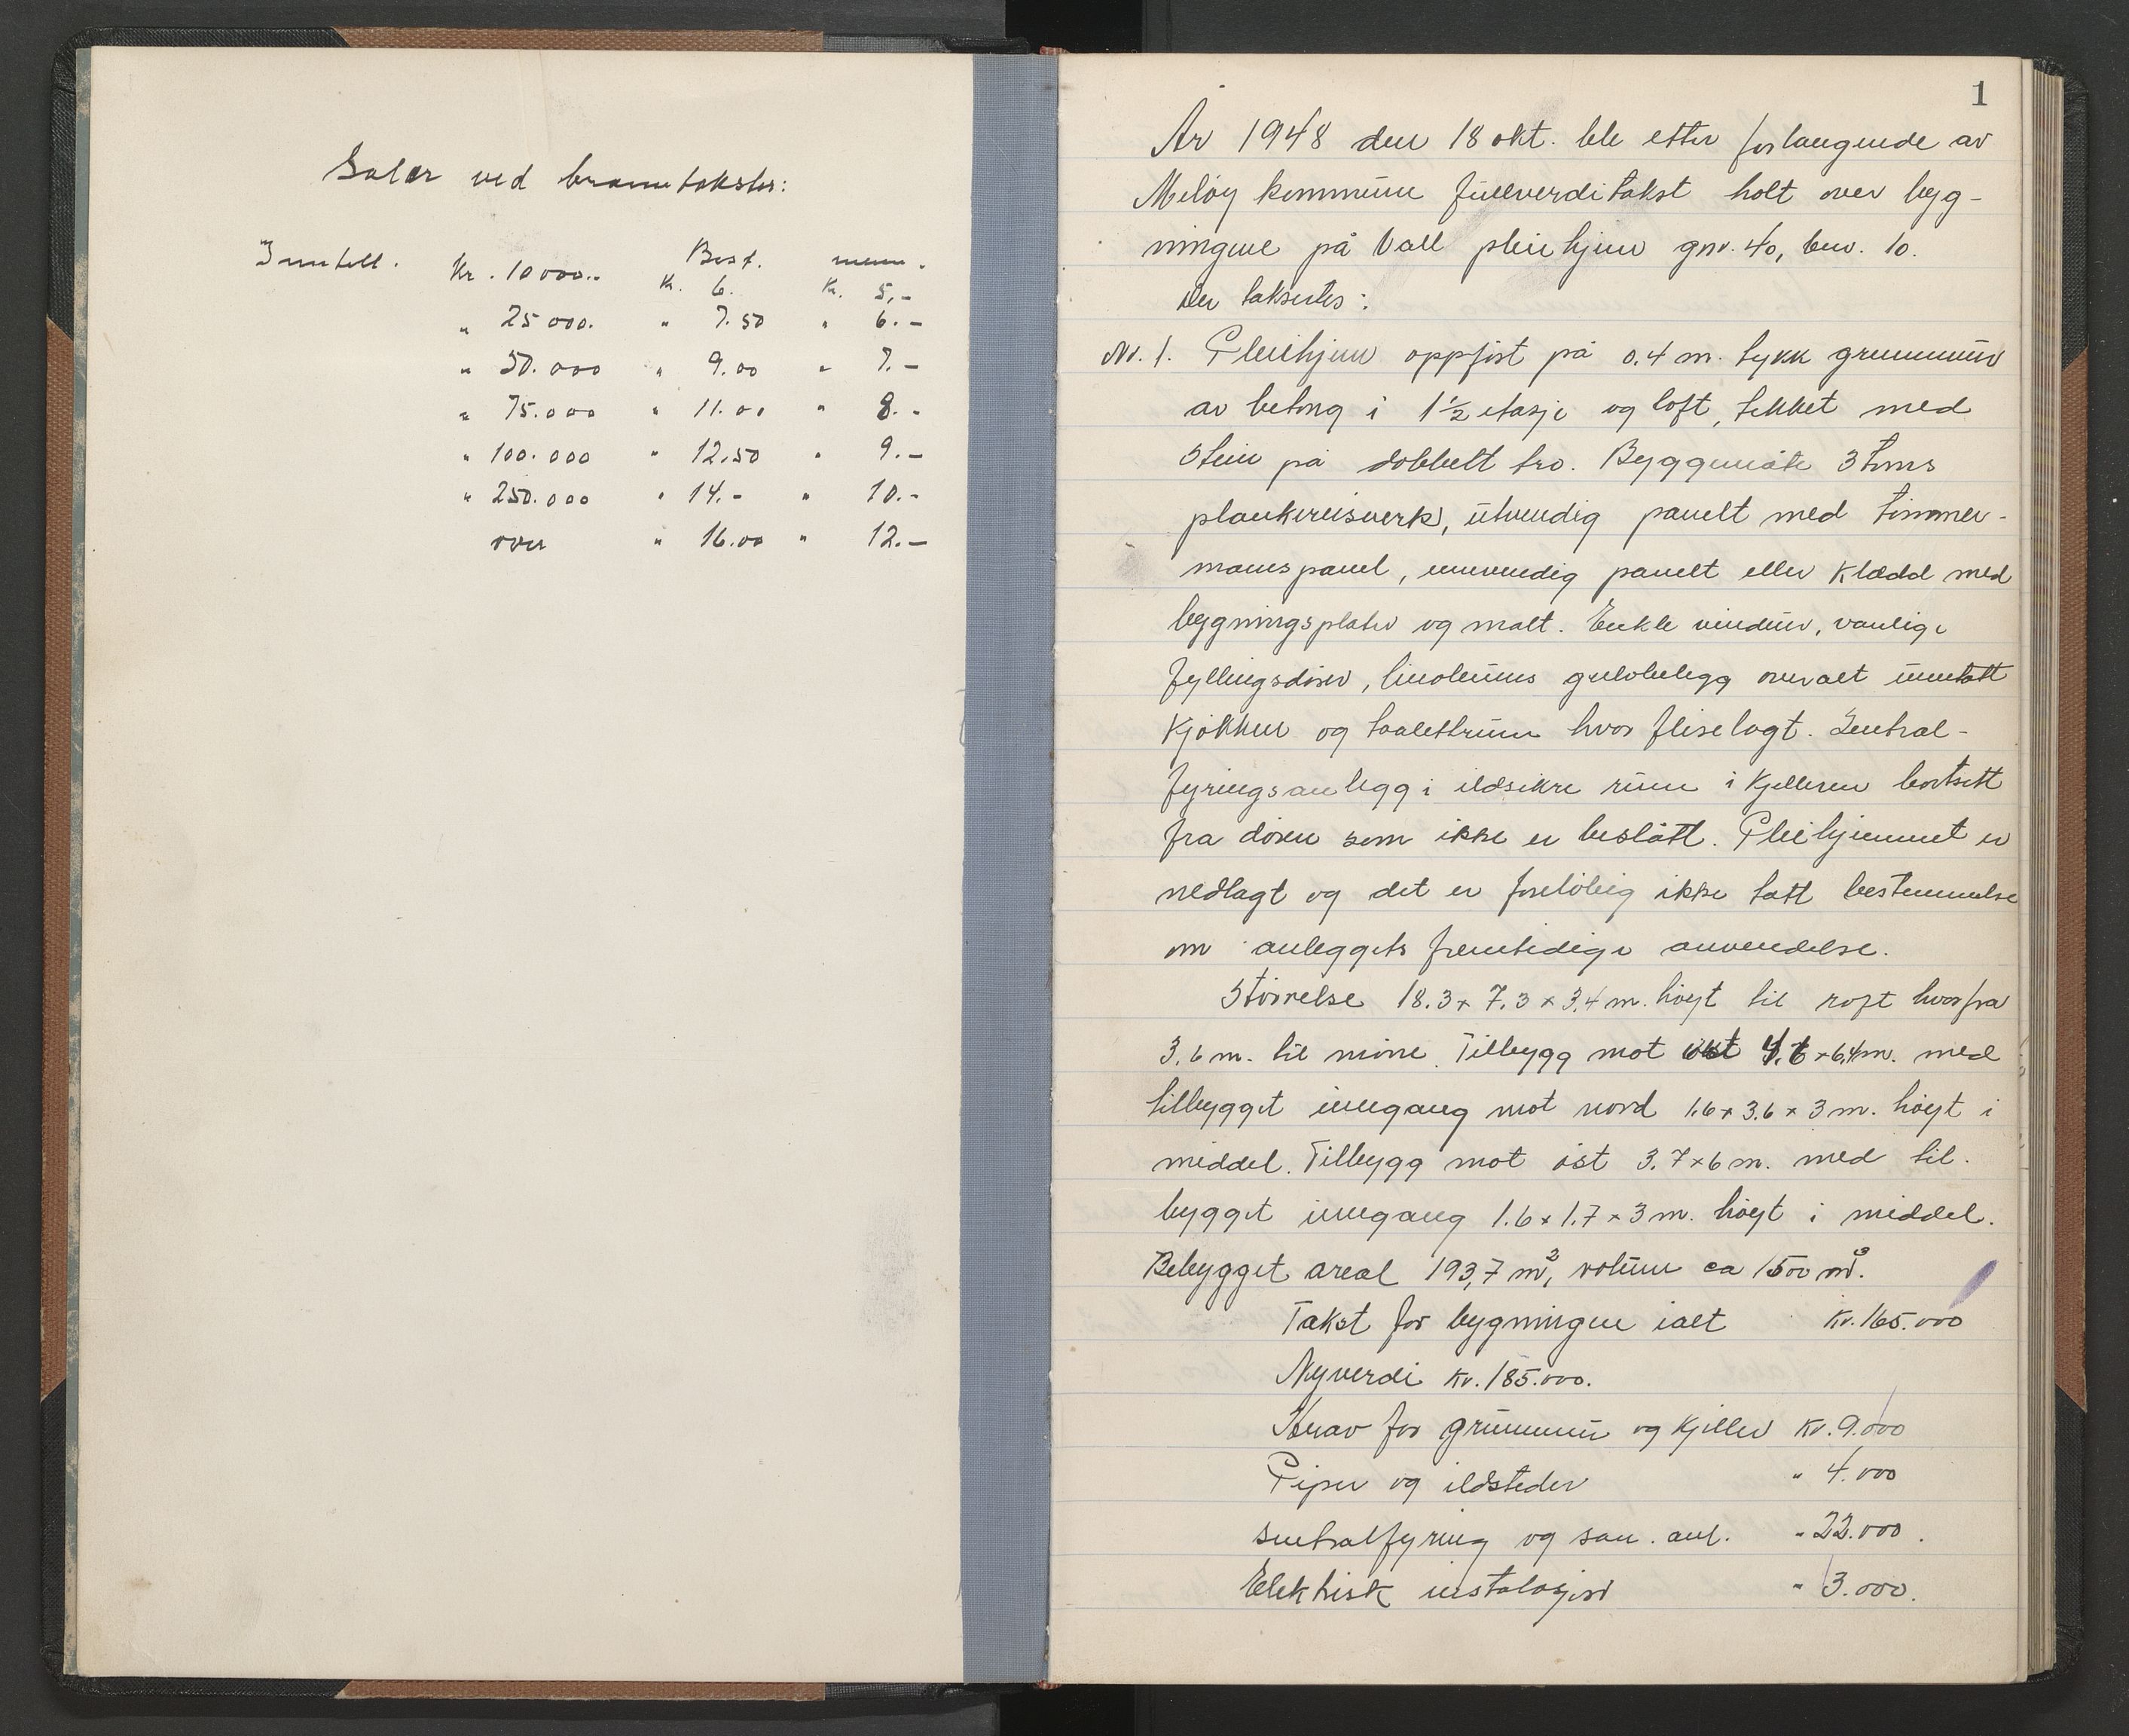 Salær ved branntakster:
Inntill. Kr. 10000.- Best. menn.
K. 6. K. 5,-
" 25000. " 7.50 " 6.-
" 50.000 " 9.00 " 7.-
" 75.000 " 11.00 " 8.-
" 100.000 " 12.50 " 9.-
" 250.000 " 14.- " 10.-
over " 16.00 " 12.-
1
År 1948 den 18 okt. ble etter forlangende av
Meløy kommune fullverditakst holt over byg-
ningene på Vall pleiehjem gnr. 40, bnr. 10.
Der taksertes:
Nr. 1. Pleihjem oppført på 0.4 m. tykk grunnmur
av betong i 1½ etasje og loft, tekket med
Stein på dobbelt tro. Byggemåte 3 toms
plankereisverk, utvendig panelt med timmer-
mannspanel, innvendig panelt eller klædd med
bygningsplater og malt. Enkle vinduer, vanlige
fyllingsdører, linoleums gulvbelegg overalt unntatt
kjøkken og toalettrum hvor fliselagt. Sentral-
fyringsanlegg i ildsikre rum i kjelleren bortsett
fra døren som ikke er beslått. Pleihjemmet er
nedlagt og det er foreløbig ikke tatt bestemmelse
om anleggets fremtidige anvendelse.
Størrelse 18.3 x 7.3 x 3.4 m. høyt til roft hvorfra
3.6 m. til møne. Tilbygg mot 4.6 x 6.4 m. med
tilbygget inngang mot nord 1.6 x 3.6 x 3 m. høyt i
middel. Tilbygg mot øst 3.7 x 6 m. med til-
bygget inngang 1.6 x 1.7 x 3 m. høyt i middel.
Bebygget areal 193,7 m², volum ca 1500 m³.
Takst for bygningen ialt Kr. 165.000
Nyverdi Kr. 185.000.
Herav for grunnmur og kjeller Kr. 9.000
Piper og ildsteder " 4.000
Sentralfyring og san. anl. " 22.000.
Elektrisk instalasjon " 3.000.